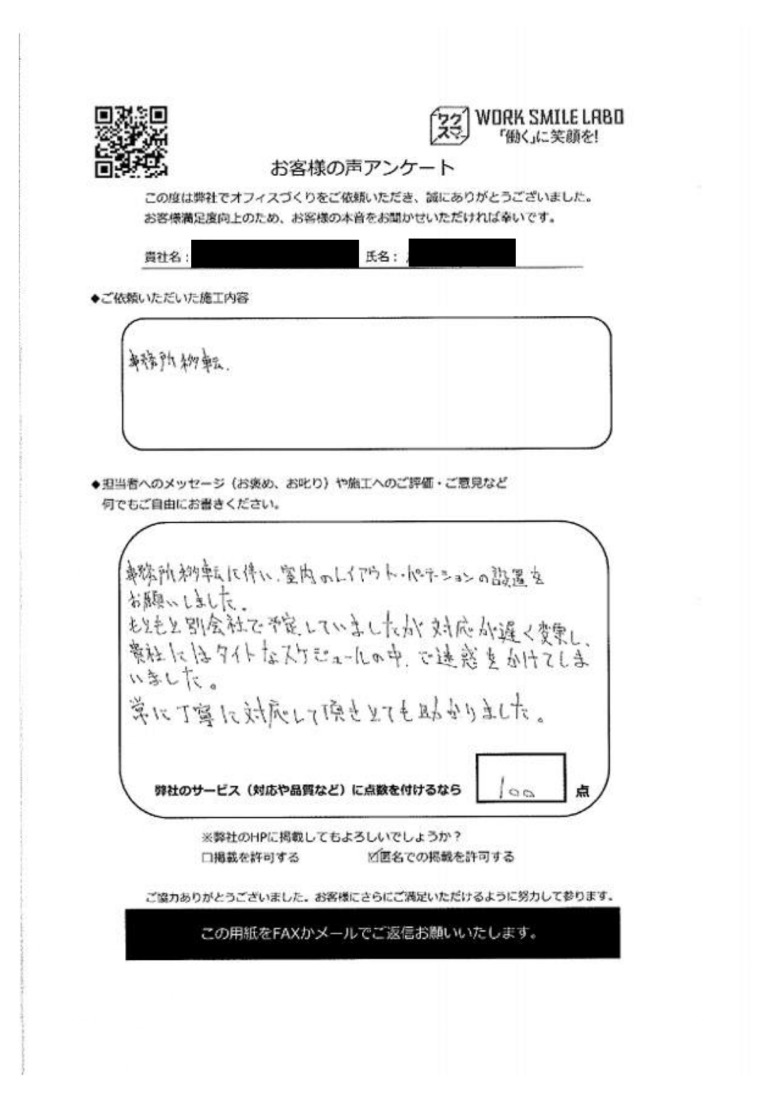 ワク
スマ
WORK SMILE LABO
「働く」に笑顔を!
お客様の声アンケート
この度は弊社でオフィスづくりをご依頼いただき、誠にありがとうございました。
お客様満足度向上のため、お客様の本音をお聞かせいただければ幸いです。
貴社名：
氏名：
◆ご依頼いただいた施工内容
事務所移転.
◆担当者へのメッセージ（お褒め、お叱り）や施工へのご評価・ご意見など
何でもご自由にお書きください。
事務所移転に伴い、室内のレイアウト・パーテーションの設置を
お願いしました。
もともと別会社で予定していましたが対応が遅く変更し、
貴社にはタイトなスケジュールの中、ご迷惑をかけてしま
いました。
常に丁寧に対応して頂きとても助かりました。
弊社のサービス（対応や品質など）に点数を付けるなら
100
点
※弊社のHPに掲載してもよろしいでしょうか？
□掲載を許可する
☑匿名での掲載を許可する
ご協力ありがとうございました。お客様にさらにご満足いただけるように努力して参ります。
この用紙をFAXかメールでご返信お願いいたします。